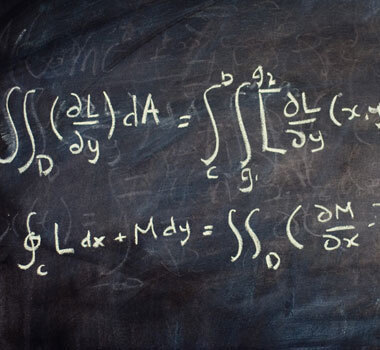 ∬_D (∂L/∂y) dA = ∫_c^b ∫_{g₁}^{g₂} [∂L/∂y (x, y
∮_c L dx + M dy = ∬_D (∂M/∂x -